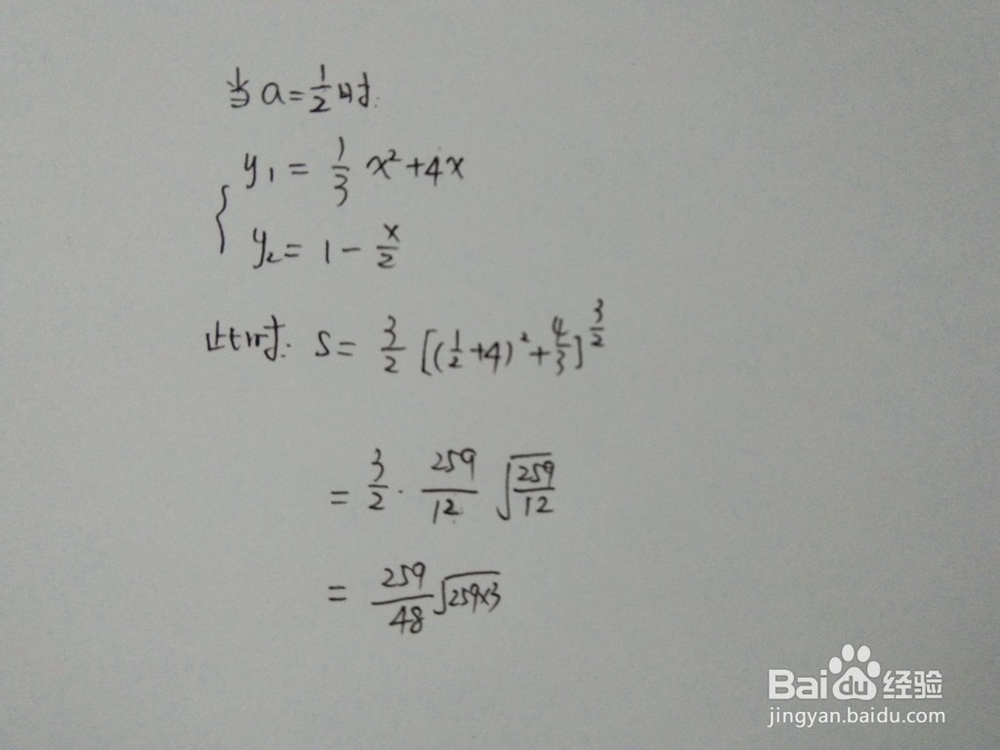 当a=1/2时.
y₁=1/3 x²+4x
y₂=1-x/2
此时:S=3/2[(1/2+4)²+4/3]^(3/2)
=3/2·259/12√(259/12)
=259/48√(259×3)
Baidu经验
jingyan.baidu.com